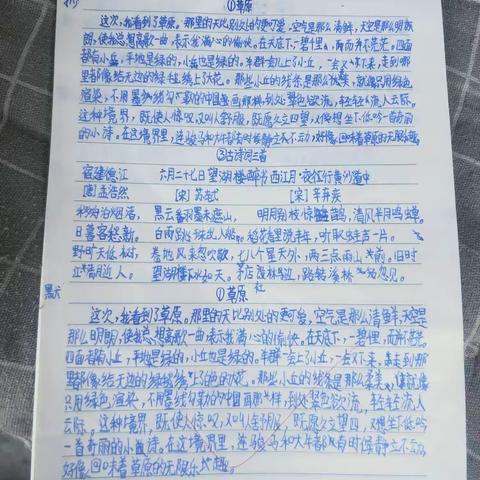 ①草原
这次,我看到了草原。那里的天比别处的更可爱,空气是那么清鲜,天空是那么明朗
朗,使我总想高歌一曲,表示我满心的愉快。在天底下,一碧千里,而并不茫茫。四面
都有小丘,平地是绿的,小丘也是绿的。羊群一会上了小丘,一会又下来,走到哪
里都像给无边的绿毯绣上了大花。那些小丘的线条是那么柔美,就像只用绿色
渲染,不用墨线勾勒的中国画那样,到处翠色欲流,轻轻流入云际。
这种境界,既使人惊叹,又叫人舒服,既愿久立四望,又想坐下低吟一首奇丽
的小诗。在这境界里,连骏马和大牛都有时候静立不动,好像回味着草原的无限乐趣
③古诗词三首
宿建德江 六月二十七日望湖楼醉书 西江月·夜行黄沙道中
[唐]孟浩然 [宋]苏轼 [宋]辛弃疾
移舟泊烟渚, 黑云翻墨未遮山, 明月别枝惊鹊,清风半夜鸣蝉。
日暮客愁新。 白雨跳珠乱入船。 稻花香里说丰年,听取蛙声一片。
野旷天低树, 卷地风来忽吹散, 七八个星天外,两三点雨山前。旧时
江清月近人。 望湖楼下水如天。 茅店社林边,路转溪桥忽见。
①草原
这次,我看到了草原。那里的天比别处的更可爱,空气是那么清鲜,天空是
那么明朗,使我总想高歌一曲,表示我满心的愉快。在天底下,一碧千里,而并不茫茫。
四面都有小丘,平地是绿的,小丘也是绿的。羊群一会上了小丘,一会又下来,走到哪
里都像给无边的绿毯绣上了白色的大花。那些小丘的线条是那么柔美,就像
只用绿色渲染,不用墨线勾勒的中国画那样,到处翠色欲流,轻轻流入
云际。这种境界,既使人惊叹,又叫人舒服,既愿久立四望,又想坐下低吟
一首奇丽的小诗。在这境界里,连骏马和大牛都有时候静立不动,
好像回味着草原的无限乐趣。